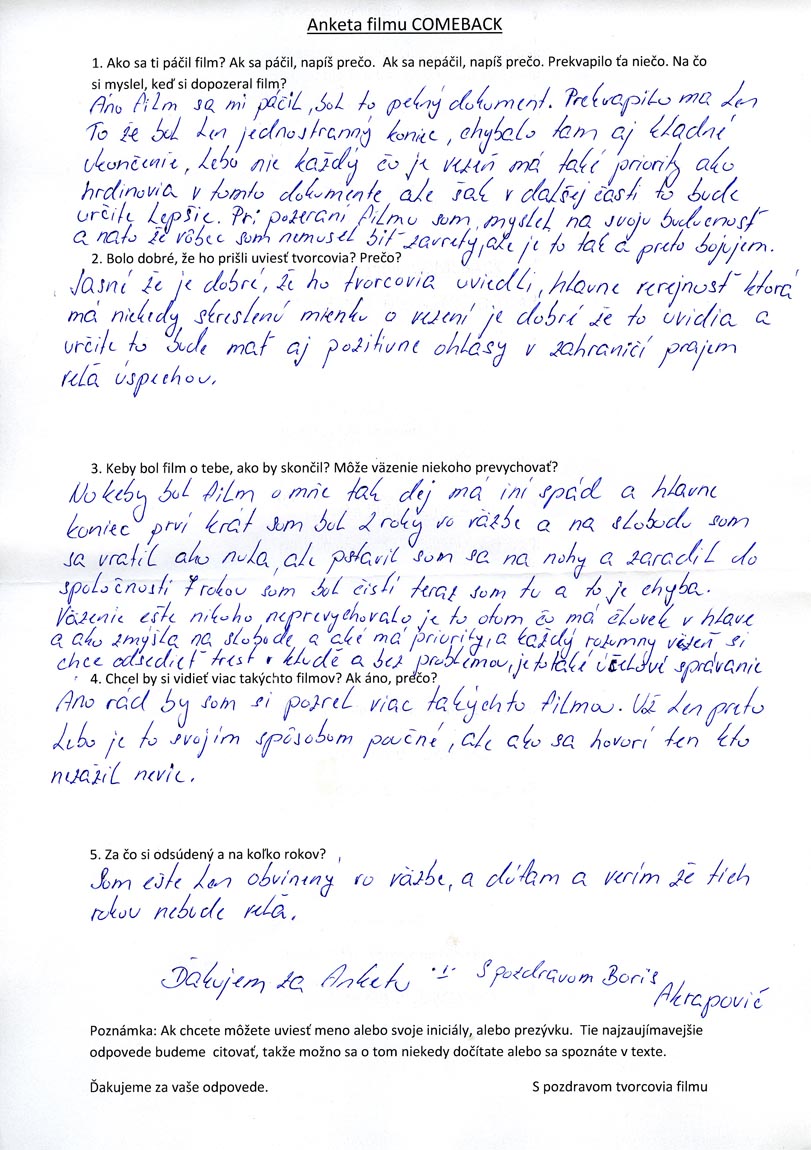 Anketa filmu COMEBACK
1. Ako sa ti páčil film? Ak sa páčil, napíš prečo. Ak sa nepáčil, napíš prečo. Prekvapilo ťa niečo. Na čo
si myslel, keď si dopozeral film?
Áno film sa mi páčil, bol to pekný dokument. Prekvapilo ma len
To že bol len jednostranný koniec, chybalo tam aj kladné
ukončenie, Lebo nie každý čo je vezeň má také priority ako
hrdinovia v tomto dokumente ale šak v dalšej časti to bude
určite Lepšie. Pri pozeraní filmu som myslel na svoju buducnosť
a nato že vôbec som nemusel biť zavretý, ale je to tak a preto bojujem.
2. Bolo dobré, že ho prišli uviesť tvorcovia? Prečo?
Jasné že je dobré, že ho tvorcovia uviedli, hlavne verejnosť ktorá
má niekedy skreslenú mienku o vezení je dobré že to uvidia a
určite to bude mať aj pozitivne ohlasy v zahraničí prajem
velá úspechov.
3. Keby bol film o tebe, ako by skončil? Môže väzenie niekoho prevychovať?
No keby bol film o mne tak dej má iní spád a hlavne
koniec prví krát som bol 2 roky vo väzbe a na slobodu som
sa vratil ako nula, ale pstavil som sa na nohy a zaradil do
spoločnosti 7 rokov som bol čistí teraz som tu a to je chyba.
Väzenie ešte nikoho neprevychovalo je to otom čo má človek v hlave
a ako zmýšla na slobode, a aké má priority, a každý rozumny vezeň si
chce odsedieť trest v kludě a bez problémov, je to také účelové správanie
4. Chcel by si vidieť viac takýchto filmov? Ak áno, prečo?
Ano rád by som si pozrel viac takýchto filmov. Už Len preto
Lebo je to svojím spôsobom poučné, ale ako sa hovorí ten kto
nezažil nevie.
5. Za čo si odsúdený a na koľko rokov?
Som ešte Len obvineny vo väzbe, a dúfam a verím že tich
rokov nebude velá.
Ďakujem za Anketu S pozdravom Boris
Akrapovič
Poznámka: Ak chcete môžete uviesť meno alebo svoje iniciály, alebo prezývku. Tie najzaujímavejšie
odpovede budeme citovať, takže možno sa o tom niekedy dočítate alebo sa spoznáte v texte.
Ďakujeme za vaše odpovede. S pozdravom tvorcovia filmu